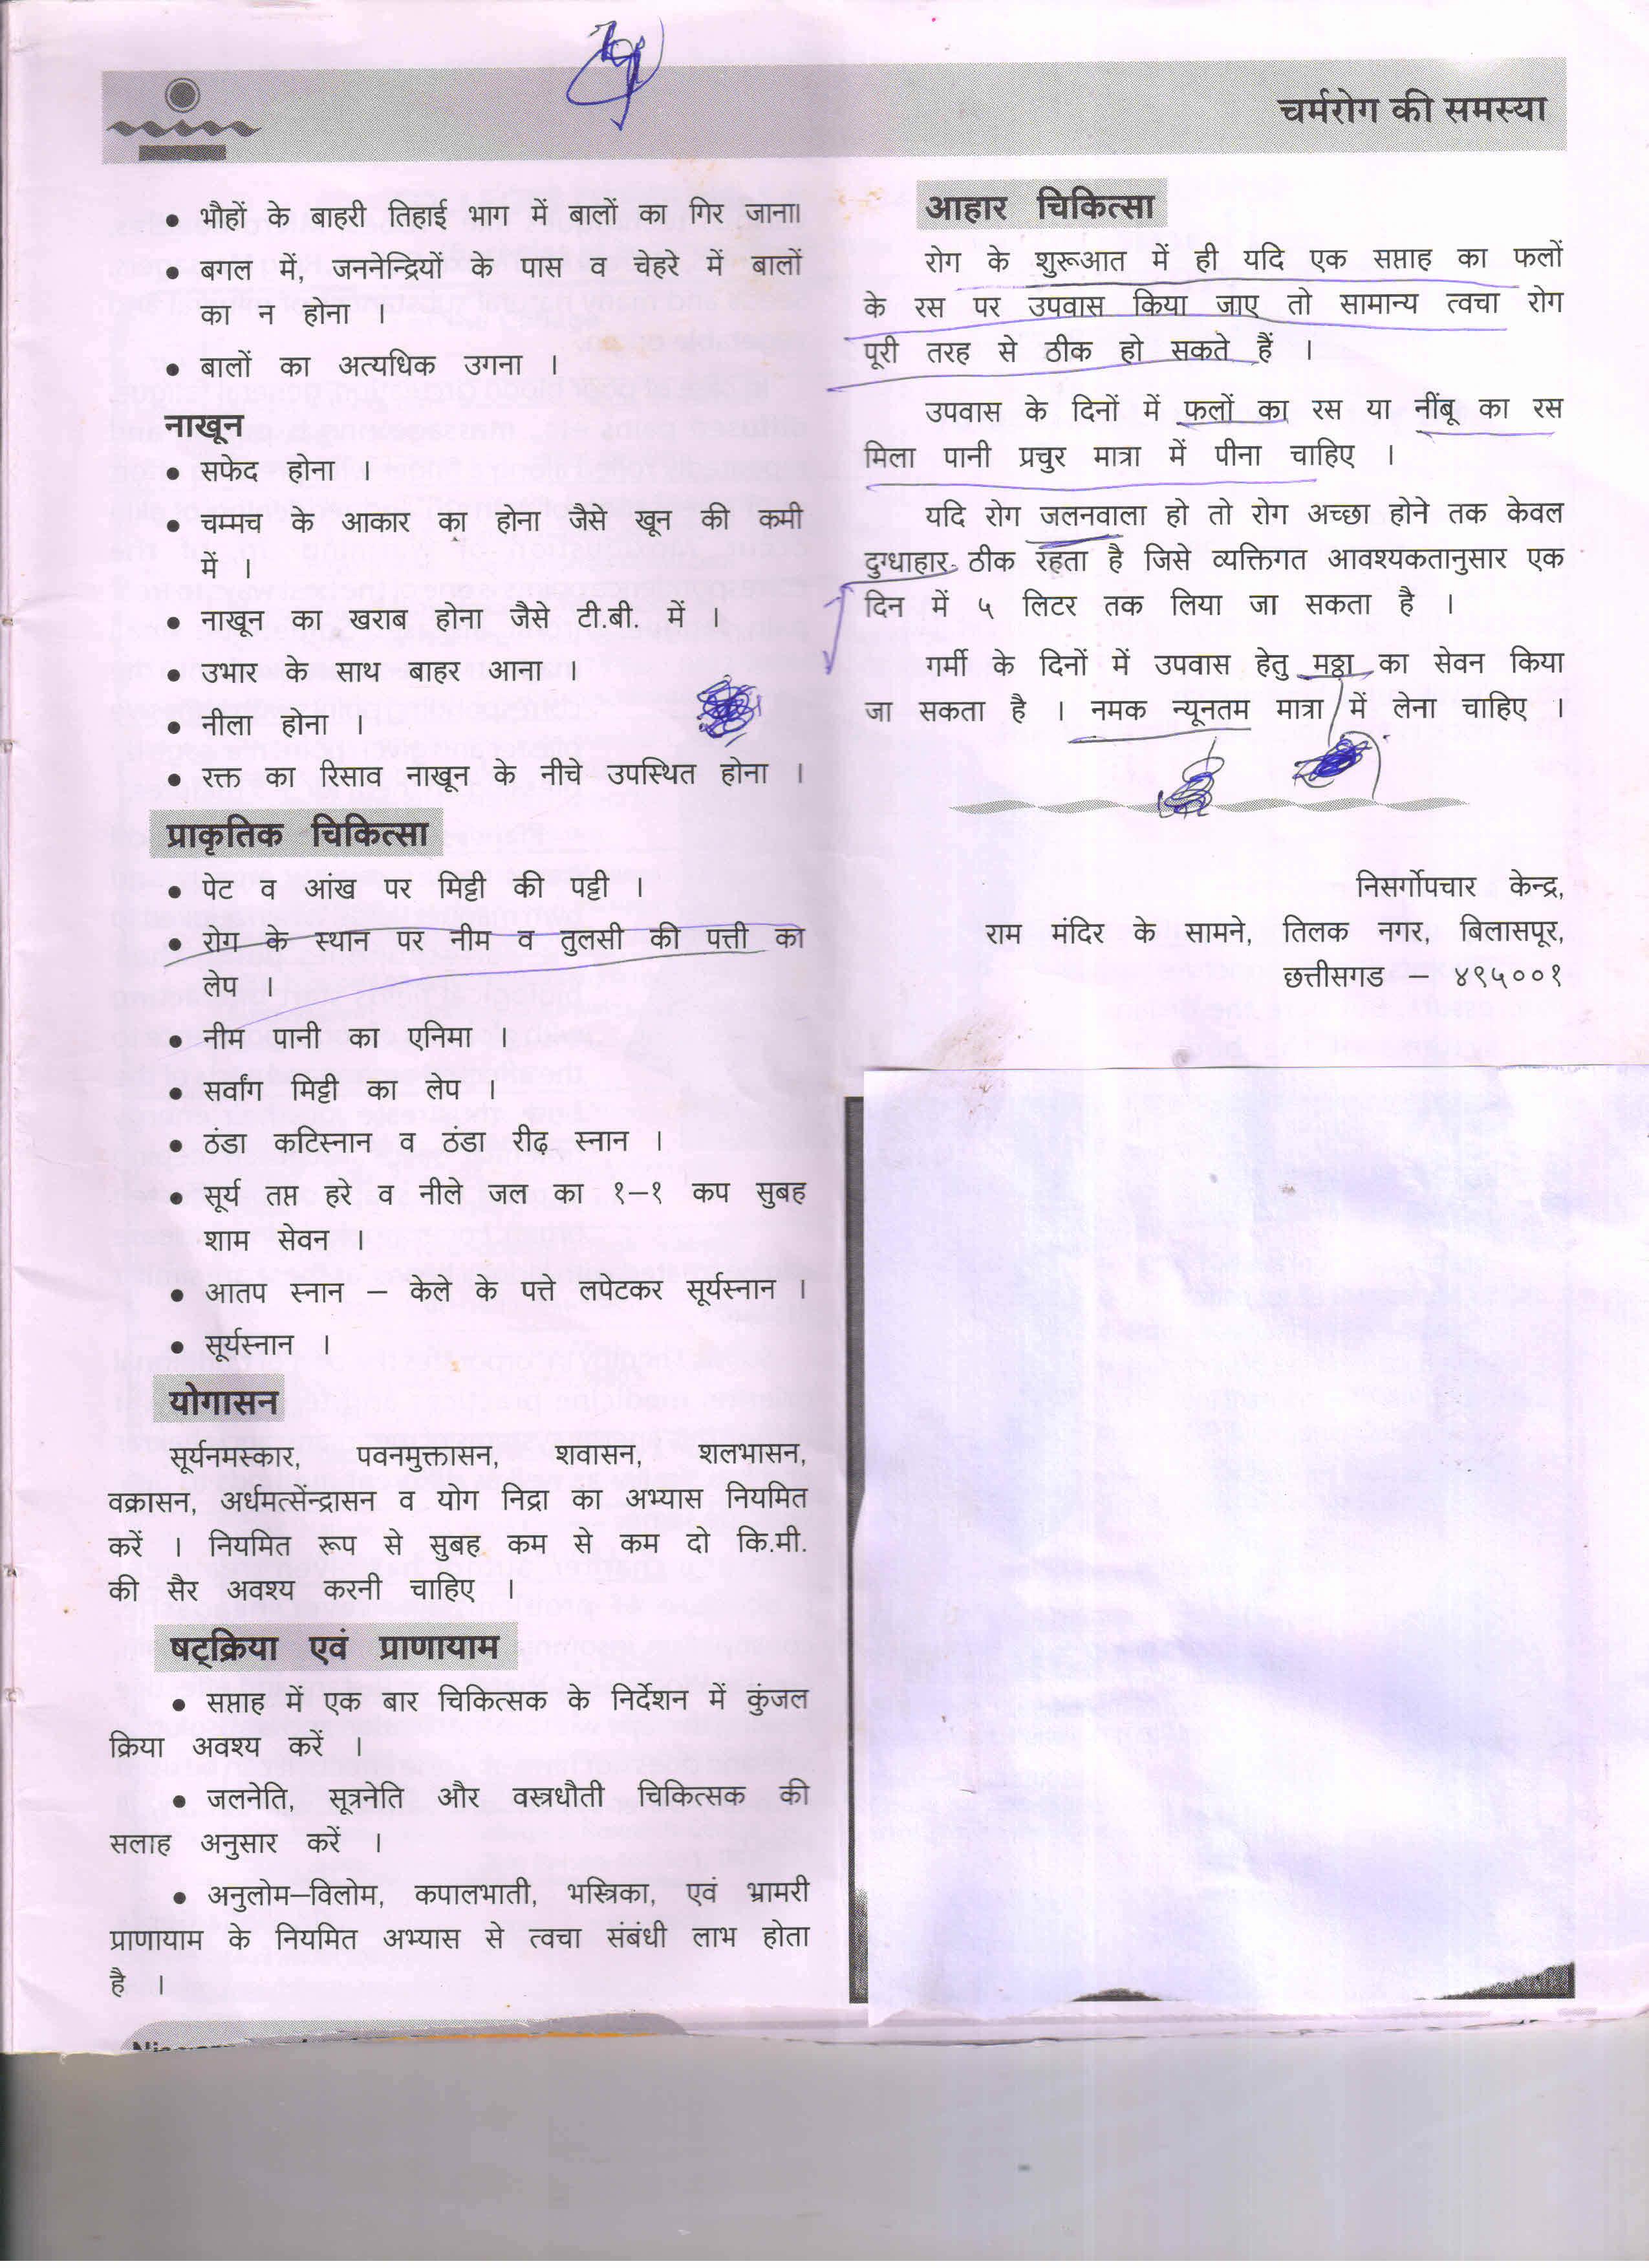 चर्मरोग की समस्या
• भौहों के बाहरी तिहाई भाग में बालों का गिर जाना।
• बगल में, जननेन्द्रियों के पास व चेहरे में बालों
का न होना ।
• बालों का अत्यधिक उगना ।
नाखून
• सफेद होना ।
• चम्मच के आकार का होना जैसे खून की कमी
में ।
• नाखून का खराब होना जैसे टी.बी. में ।
• उभार के साथ बाहर आना ।
• नीला होना ।
• रक्त का रिसाव नाखून के नीचे उपस्थित होना ।
प्राकृतिक चिकित्सा
• पेट व आंख पर मिट्टी की पट्टी ।
• रोग के स्थान पर नीम व तुलसी की पत्ती का
लेप ।
• नीम पानी का एनिमा ।
• सर्वांग मिट्टी का लेप ।
• ठंडा कटिस्नान व ठंडा रीढ़ स्नान ।
• सूर्य तप्त हरे व नीले जल का १–१ कप सुबह
शाम सेवन ।
• आतप स्नान – केले के पत्ते लपेटकर सूर्यस्नान ।
• सूर्यस्नान ।
योगासन
सूर्यनमस्कार, पवनमुक्तासन, शवासन, शलभासन,
वक्रासन, अर्धमत्सेंन्द्रासन व योग निद्रा का अभ्यास नियमित
करें । नियमित रूप से सुबह कम से कम दो कि.मी.
की सैर अवश्य करनी चाहिए ।
षट्क्रिया एवं प्राणायाम
• सप्ताह में एक बार चिकित्सक के निर्देशन में कुंजल
क्रिया अवश्य करें ।
• जलनेति, सूत्रनेति और वस्त्रधौती चिकित्सक की
सलाह अनुसार करें ।
• अनुलोम–विलोम, कपालभाती, भस्त्रिका, एवं भ्रामरी
प्राणायाम के नियमित अभ्यास से त्वचा संबंधी लाभ होता
है ।
आहार चिकित्सा
रोग के शुरूआत में ही यदि एक सप्ताह का फलों
के रस पर उपवास किया जाए तो सामान्य त्वचा रोग
पूरी तरह से ठीक हो सकते हैं ।
उपवास के दिनों में फलों का रस या नींबू का रस
मिला पानी प्रचुर मात्रा में पीना चाहिए ।
यदि रोग जलनवाला हो तो रोग अच्छा होने तक केवल
दुग्धाहार ठीक रहता है जिसे व्यक्तिगत आवश्यकतानुसार एक
दिन में ५ लिटर तक लिया जा सकता है ।
गर्मी के दिनों में उपवास हेतु मठ्ठा का सेवन किया
जा सकता है । नमक न्यूनतम मात्रा में लेना चाहिए ।
निसर्गोपचार केन्द्र,
राम मंदिर के सामने, तिलक नगर, बिलासपूर,
छत्तीसगड – ४९५००१